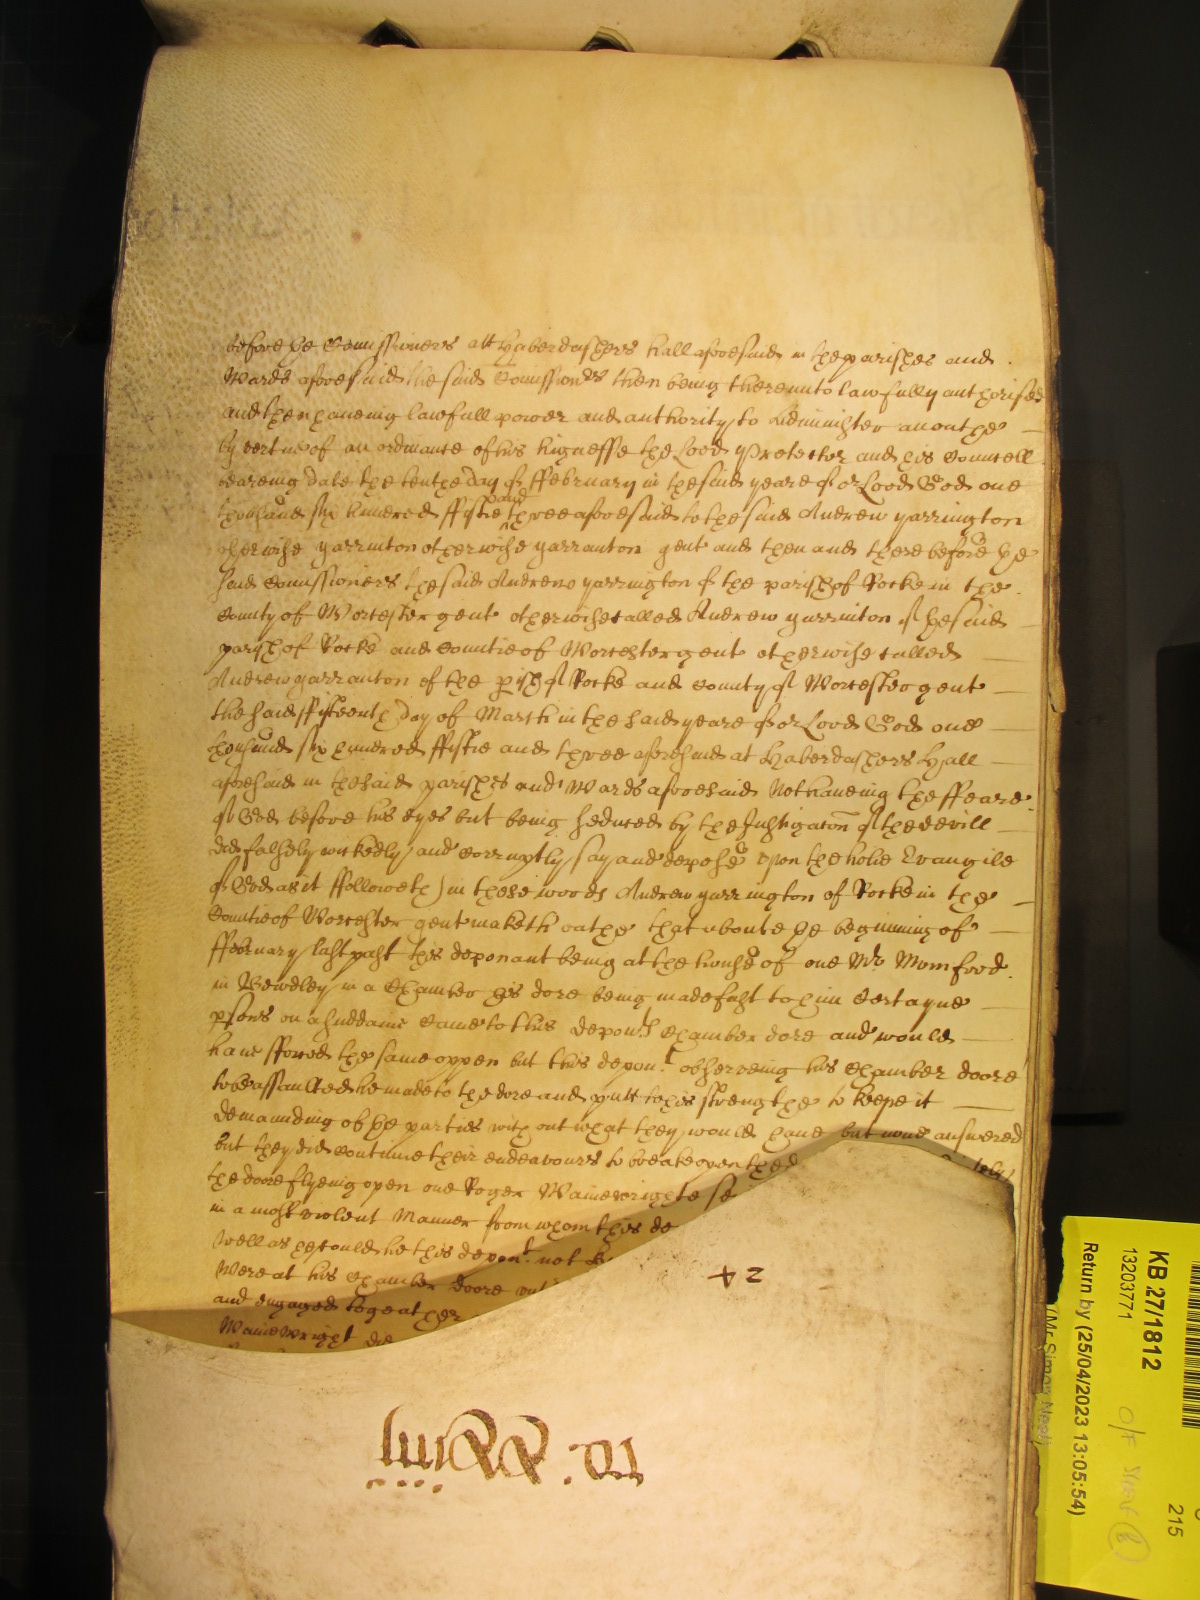 before the Comissioners att Haberdashers hall aforesaid in the parishes and
Wards aforesaid the said Comission[er]s then being thereunto lawfully authorised
and then haueing lawfull power and authority to Administer an oathe
by vertue of an ordinance of his highnesse the Lord Protector and his Councell
beareing date the tenthe day of ffebruary in the said yeare of or Lord God one
thousand six hundred ffiftie and three aforesaid to the said Andrew yarrington
otherwise yarrinton otherwise yarranton gent and then and there before the
said Comissioners the said Andrew yarrington of the parish of Rocke in the
County of Worcester gent otherwise called Andrew yarrinton of the said
parish of Rocke and Countie of Worcester gent otherwise called
Andrew yarranton of the pish of Rocke and County of Worcester gent
the said ffifteenth day of March in the said yeare of or Lord God one
thousand six hundred ffiftie and three aforesaid at Haberdashers Hall
aforesaid in the said parishes and Wards aforesaid Not haueing the ffeare
of God before his eyes but being seduced by the Instigacon of the devill
did falsely wickedly and corruptly say and depose vpon the holie Evangile
of God as it ffolloweth in these words Andrew yarrington of Rocke in the
Countie of Worcester gent maketh oathe that aboute the beginning of
ffebruary last past this deponant being at the house of one Mr Momford
in Bewdley in a Chamber his dore being made fast to him Certayne
psons on a suddaine Came to this depont Chamber dore and would
haue fforced the same oppen but this depont obserueing his Chamber doore
to be assaulted he made to the dore and putt to his strengthe to keepe it
demaunding of the parties without what they would haue but none answered
but they did continue their endeavours to breake open the d
lely
the doore flyeing open one Roger Wainewrighte se
in a most violent Manner from whom this de
well as he could he this depont not k
were at his Chamber doore out
and engaged togeather
Wainewright did
+ 2
Ro: Rolls
KB 27/1812
13203771
Return by (25/04/2023 13:05:54)
(Mr Simon Neal)
215